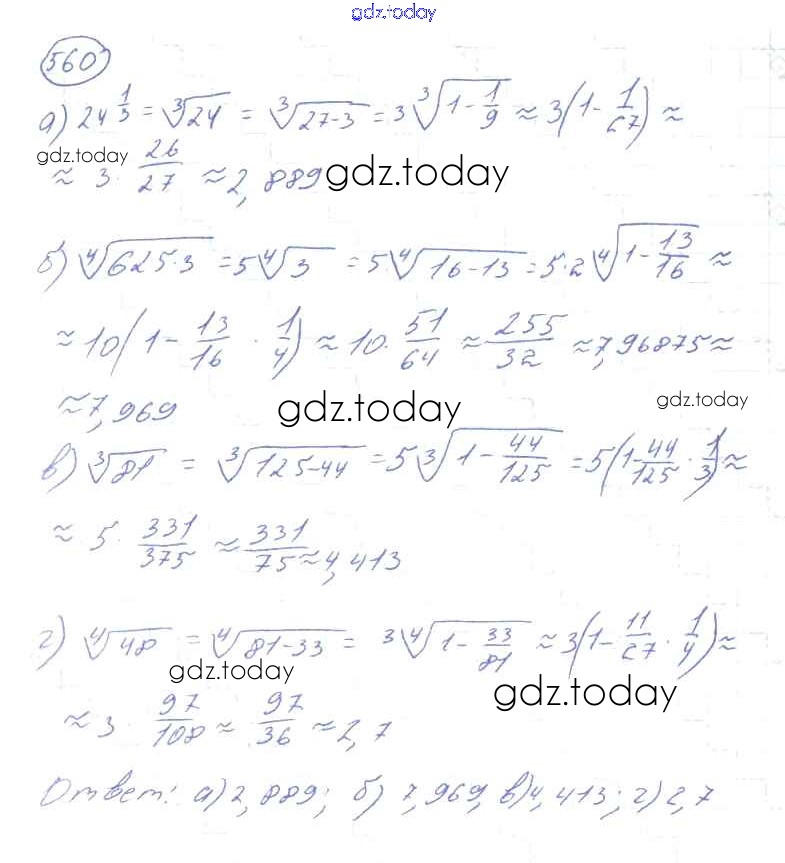 gdz.today
560
а) 24^(1/3) = ∛24 = ∛(27-3) = 3∛(1 - 1/9) ≈ 3(1 - 1/27) ≈
gdz.today
≈ 3 · 26/27 ≈ 2,889 gdz.today
б) ∜(625·3) = 5∜3 = 5∜(16-13) = 5·2∜(1 - 13/16) ≈
≈ 10(1 - 13/16 · 1/4) ≈ 10 · 51/64 ≈ 255/32 ≈ 7,96875 ≈
≈ 7,969 gdz.today gdz.today
в) ∛81 = ∛(125-44) = 5∛(1 - 44/125) = 5(1 - 44/125 · 1/3) ≈
≈ 5 · 331/375 ≈ 331/75 ≈ 4,413
г) ∜48 = ∜(81-33) = 3∜(1 - 33/81) ≈ 3(1 - 11/27 · 1/4) ≈
gdz.today gdz.today
≈ 3 · 97/108 ≈ 97/36 ≈ 2,7
Ответ: а) 2,889; б) 7,969, в) 4,413; г) 2,7